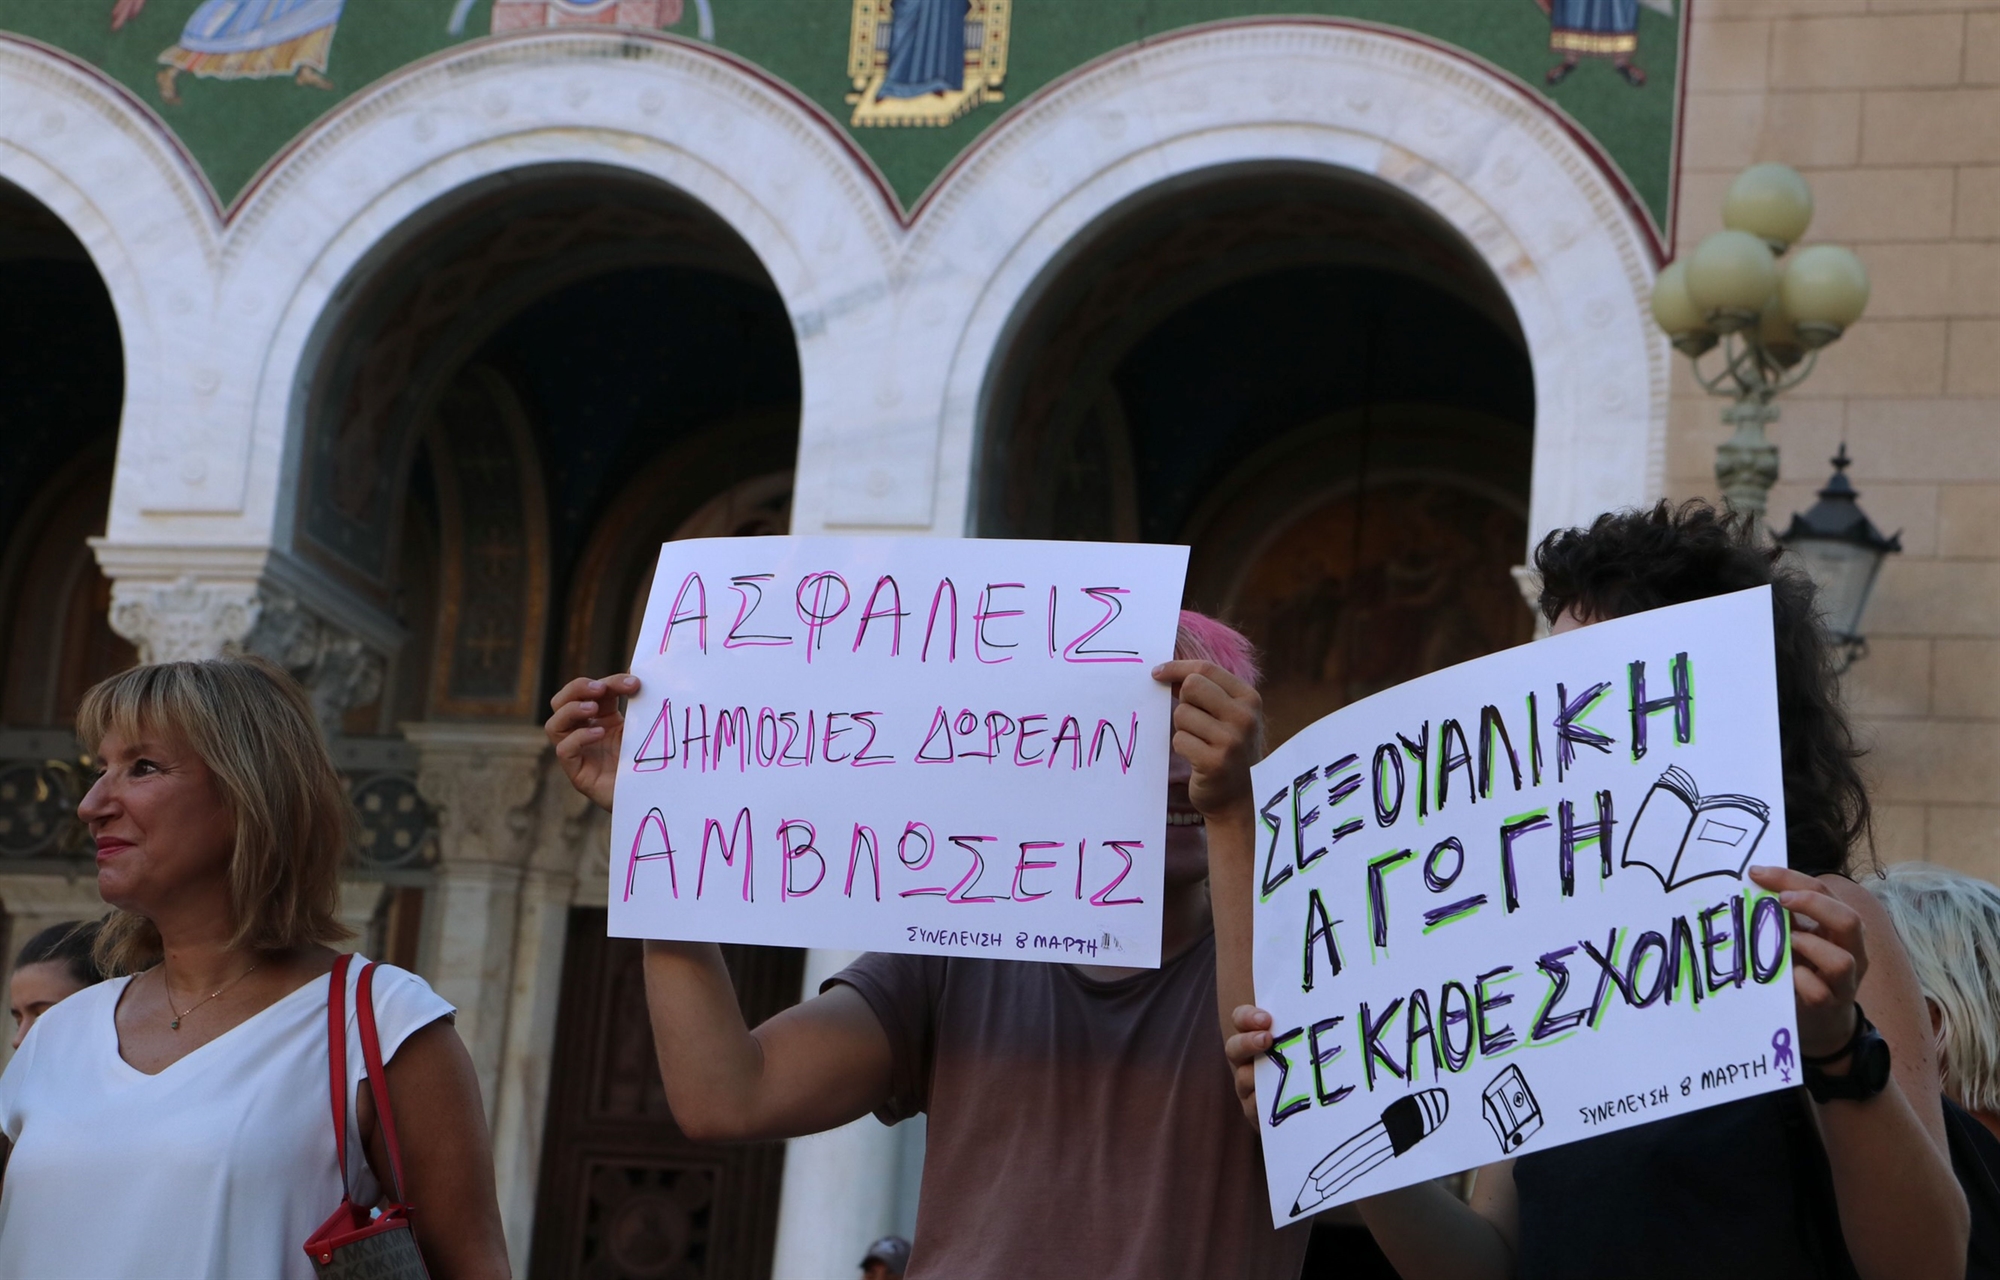 ΑΣΦΑΛΕΙΣ
ΔΗΜΟΣΙΕΣ ΔΩΡΕΑΝ
ΑΜΒΛΩΣΕΙΣ
ΣΥΝΕΛΕΥΣΗ 8 ΜΑΡΤΗ
ΣΕΞΟΥΑΛΙΚΗ
ΑΓΩΓΗ
ΣΕ ΚΑΘΕ ΣΧΟΛΕΙΟ
ΣΥΝΕΛΕΥΣΗ 8 ΜΑΡΤΗ